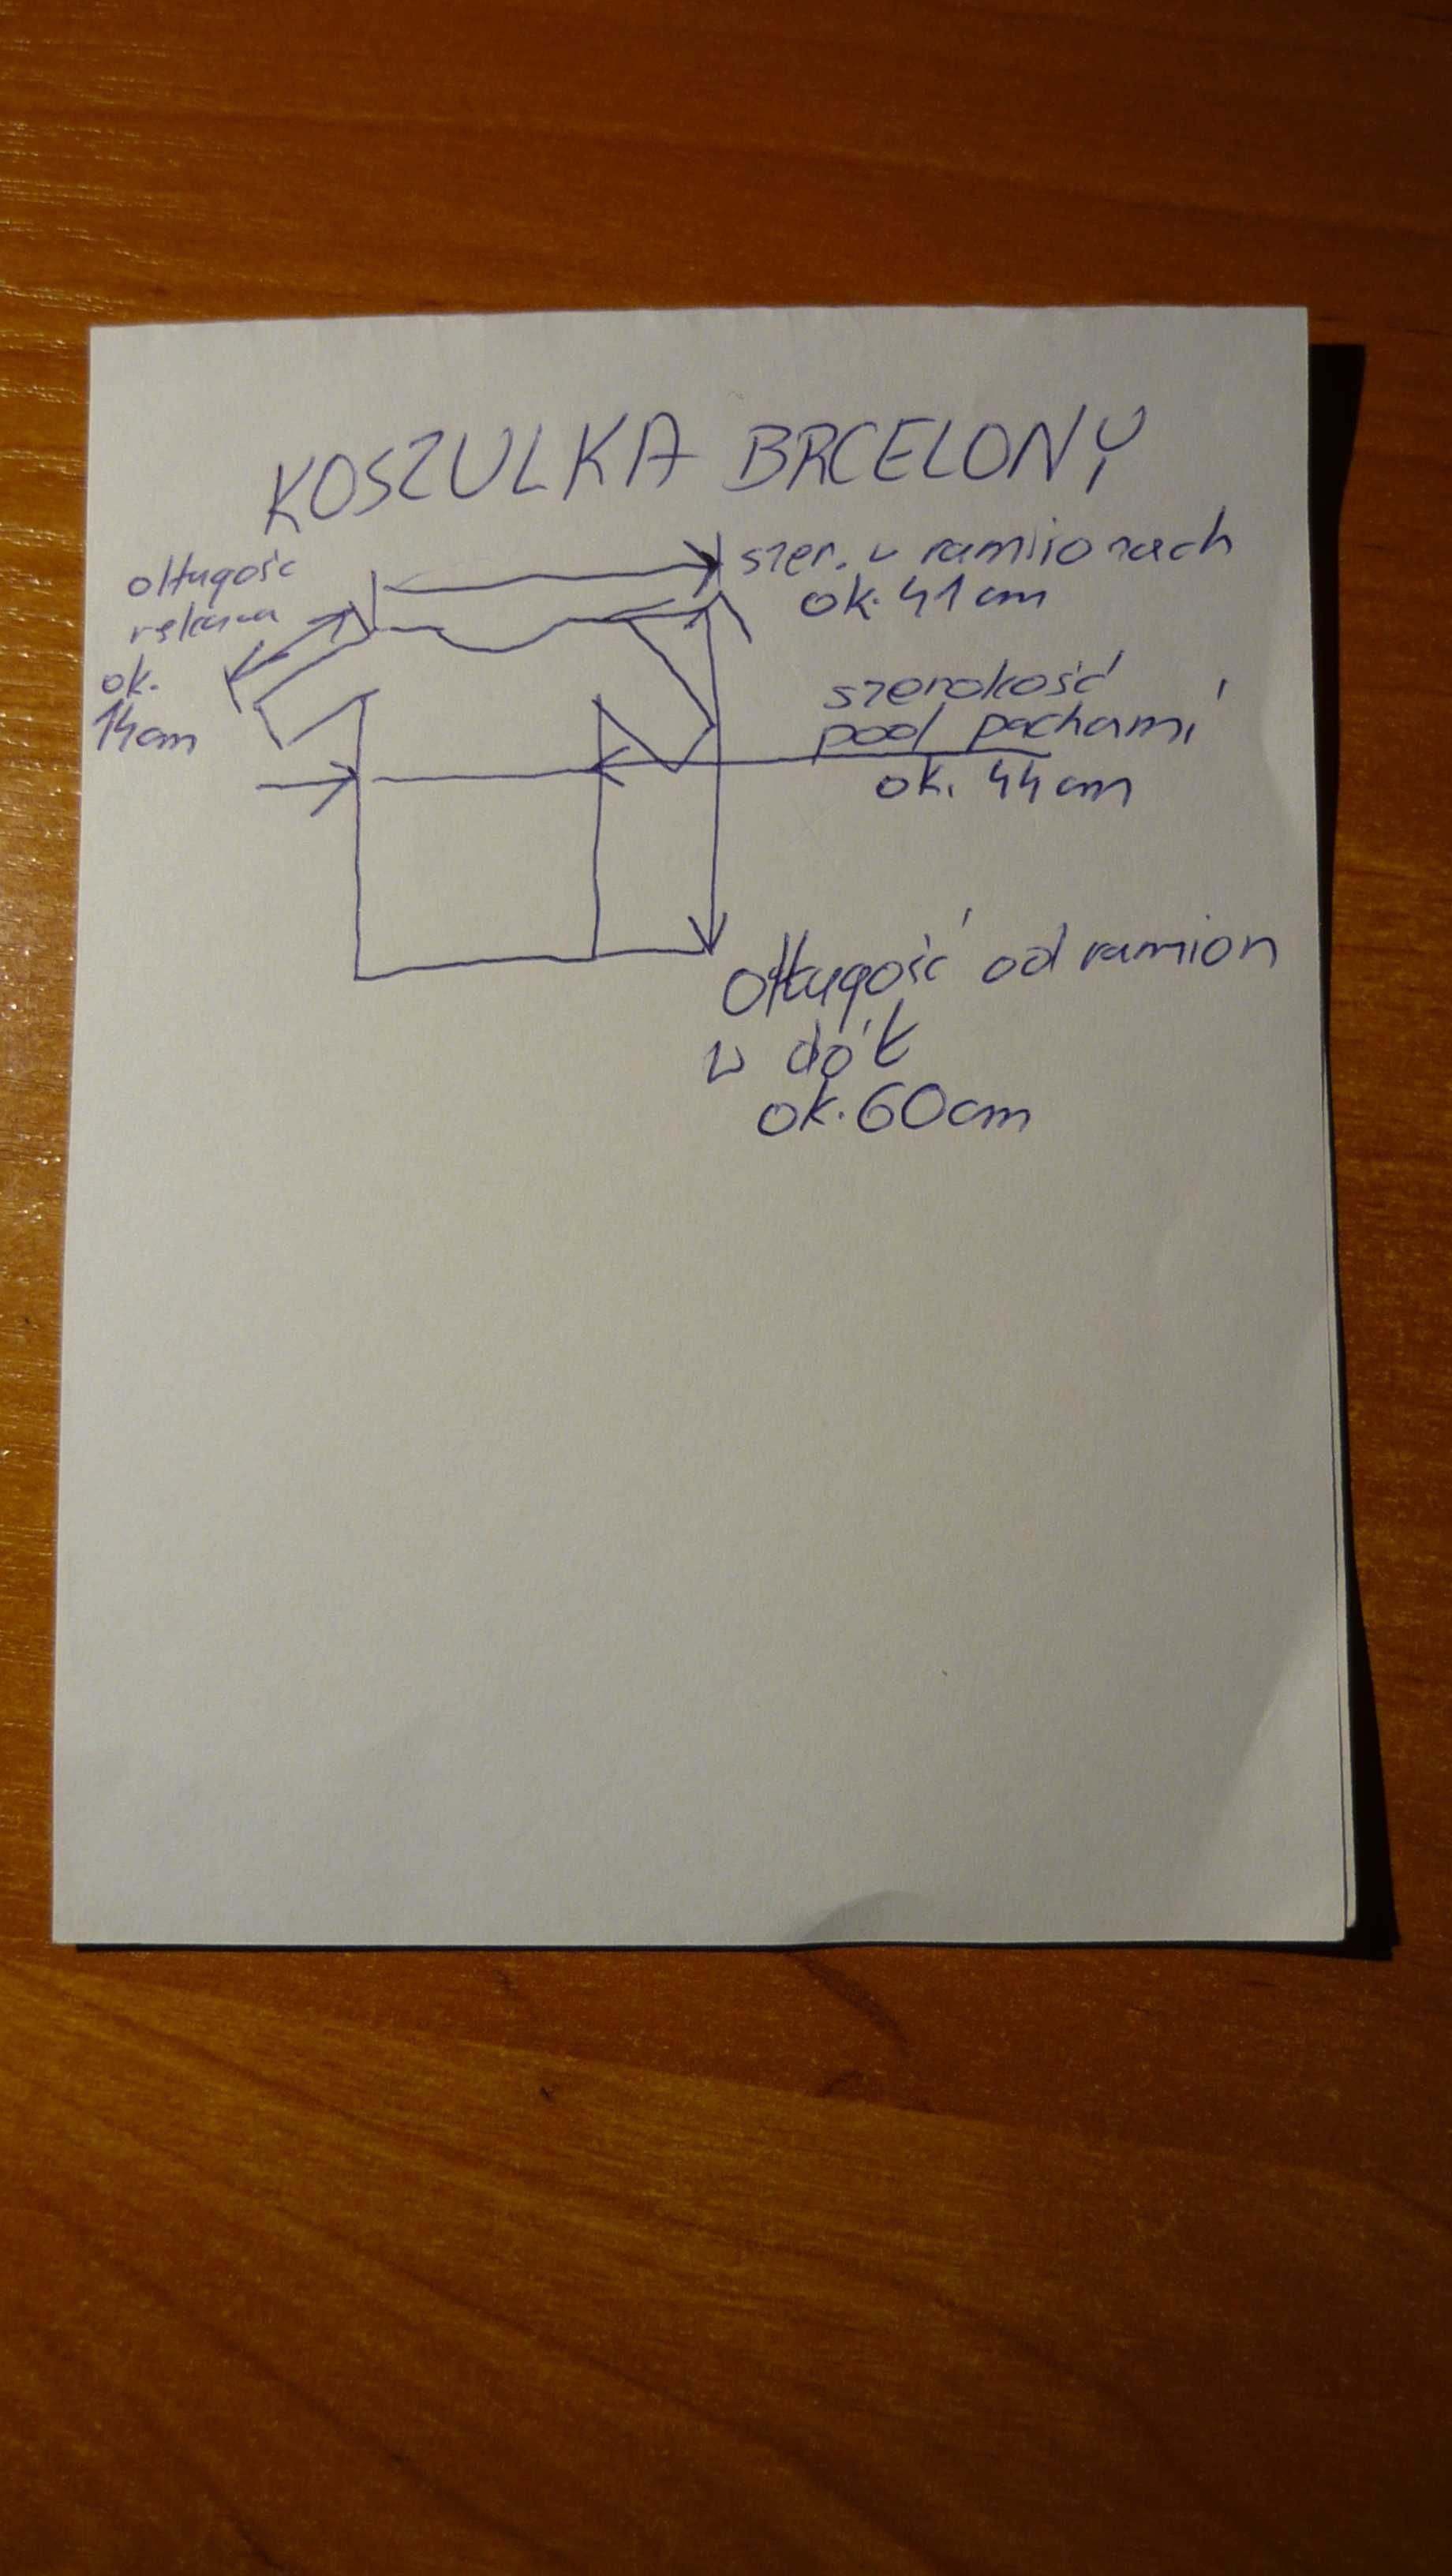 KOSZULKA BRCELONY
długość
rękawa
ok.
14cm
szer. w ramiionach
ok. 41 cm
szerokość
pod pachami
ok. 44 cm
długość od ramion
w dół
ok. 60cm